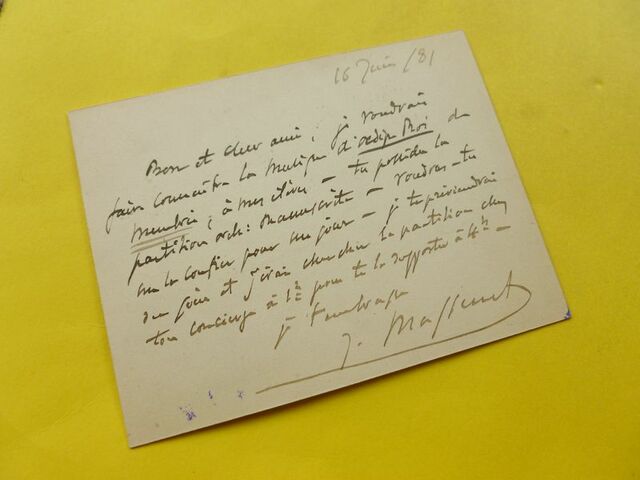 16 Juin /81
Bon et cher ami, je voudrais
faire connaître la musique d'Œdipe Roi de
Membrée, à mes élèves — tu possèdes la
partition orch: manuscrite — voudras-tu
me la confier pour un jour — je te préviendrai
du jour et j'irai chercher la partition chez
ton concierge à 1h pour te la rapporter à 4h —
je t'embrasse
J. Massenet